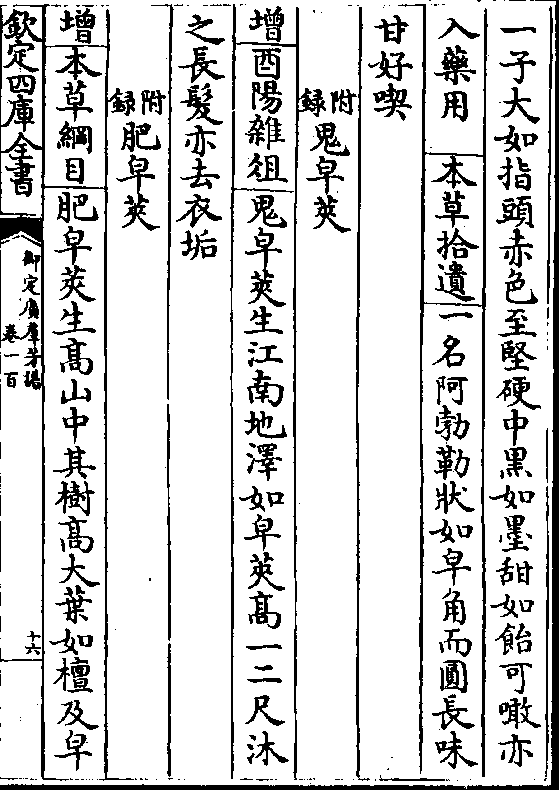 一子大如指頭赤色至堅硬中黑如墨甜如飴可噉亦
入藥用 本草拾遺一名阿勃勒狀如皁角而圓長味
甘好喫
附録鬼皁莢
增酉陽雜俎鬼皁莢生江南地澤如皁莢髙一二尺沐
之長髮亦去衣垢
附録肥皁莢
增本草綱目肥皁莢生髙山中其樹髙大葉如檀及皁
欽定四庫全書
御定廣羣芳譜
卷一百
十六